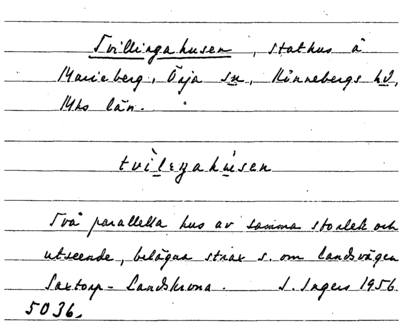 Tvillingahusen, stathus å
Marieberg, Örja sn, Rönnebergs hd,
Mhs län.
Två parallella hus av samma storlek och
utseende, belägna strax s. om landsvägen
Saxtorp - Landskrona. I. Ingers 1956.
5036.